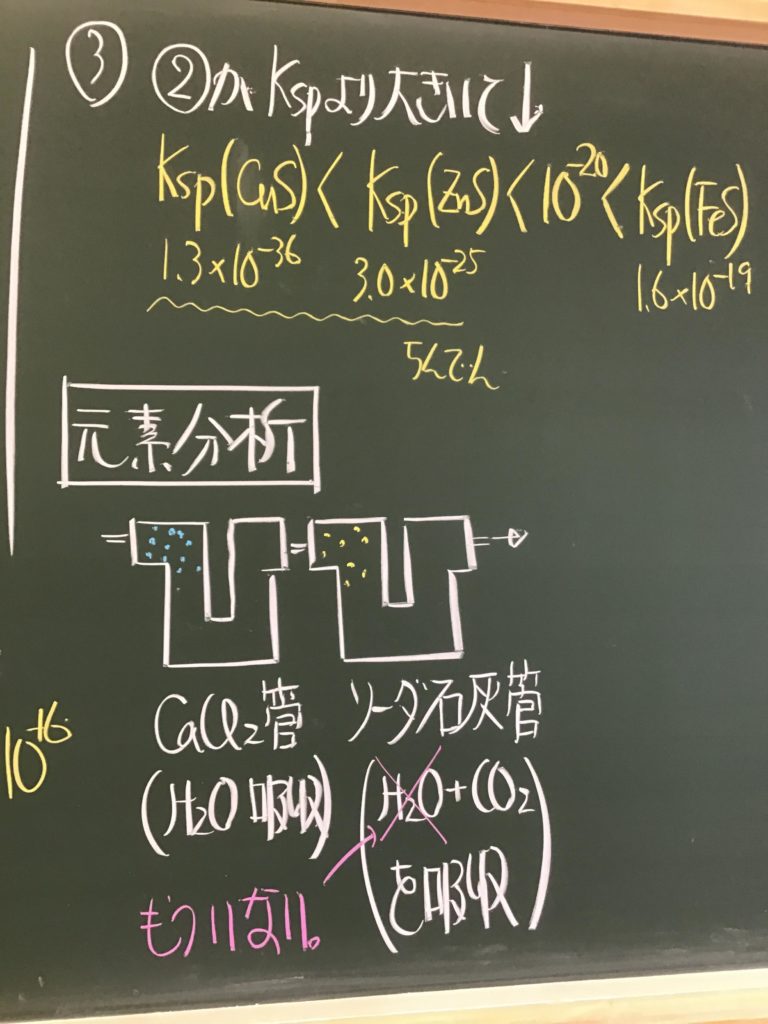 ③ ②がKspより大きいと↓
Ksp(CuS)<Ksp(ZnS)<10⁻²⁰<Ksp(FeS)
1.3×10⁻³⁶ 3.0×10⁻²⁵ 1.6×10⁻¹⁹
ちんでん
元素分析
CaCl₂管 ソーダ石灰管
(H₂O吸収) (H₂O+CO₂
を吸収)
もういない。
10⁻¹⁶